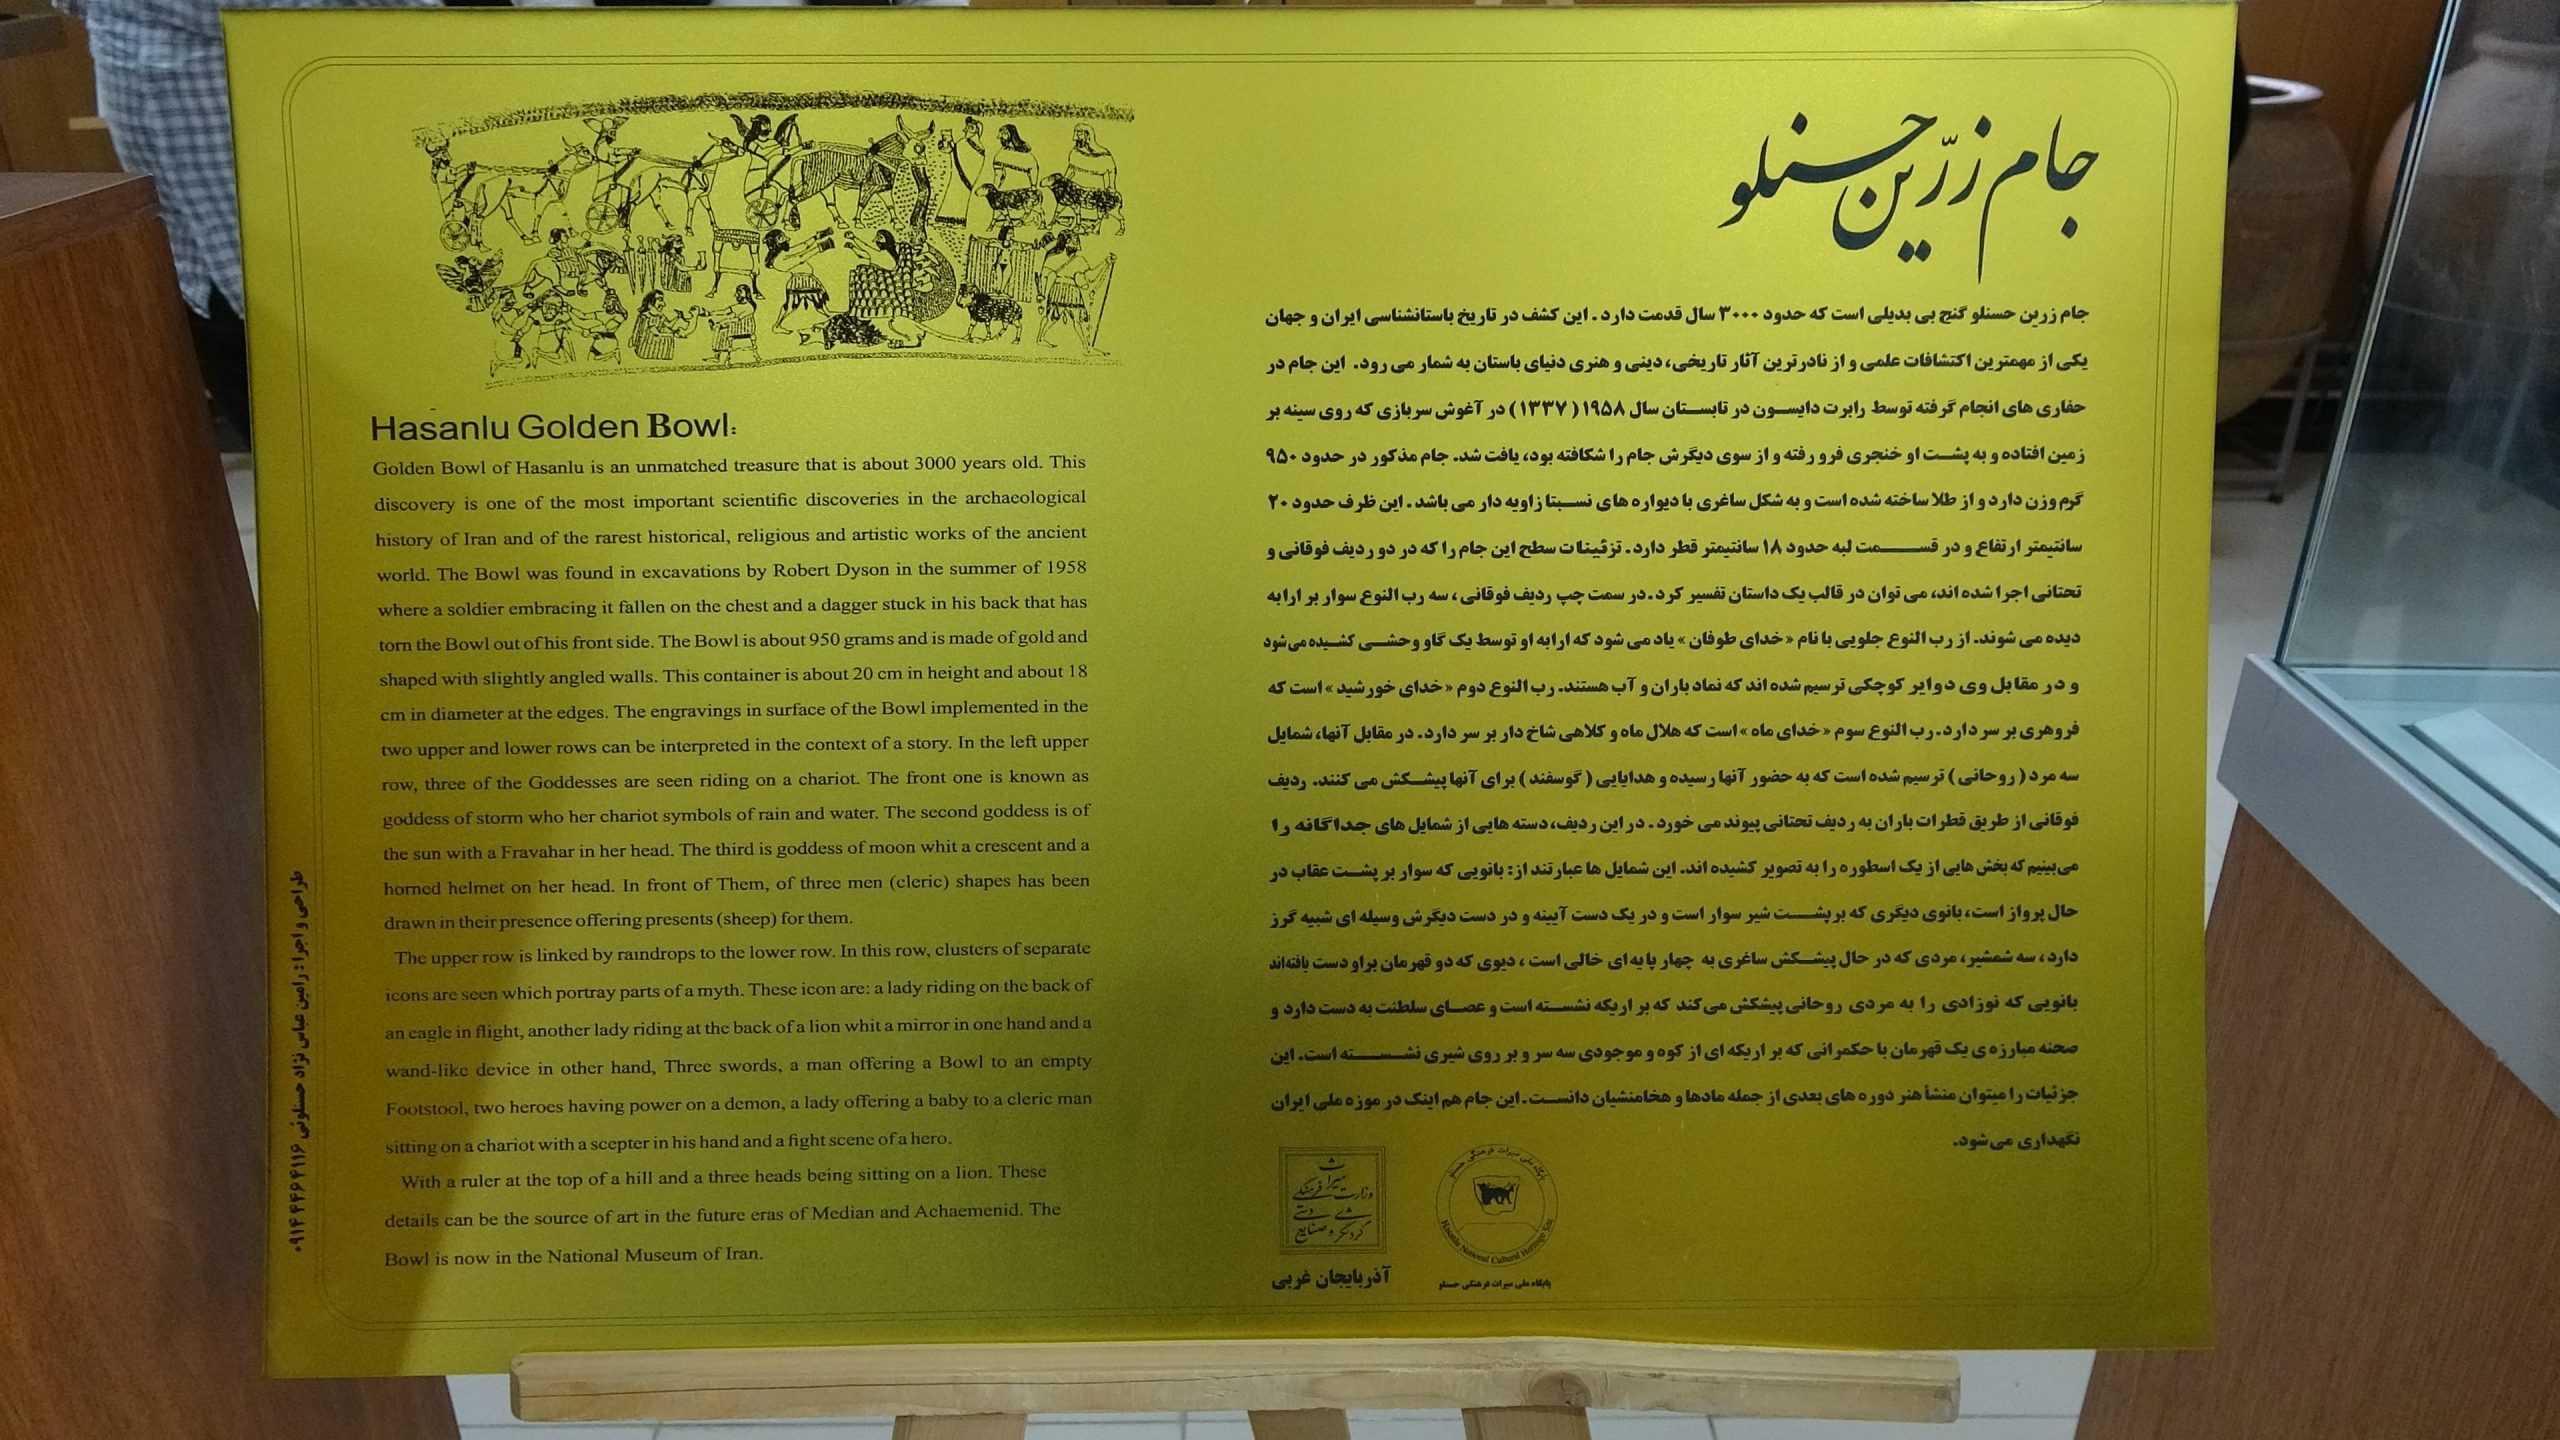 Hasanlu Golden Bowl:
Golden Bowl of Hasanlu is an unmatched treasure that is about 3000 years old. This
discovery is one of the most important scientific discoveries in the archaeological
history of Iran and of the rarest historical, religious and artistic works of the ancient
world. The Bowl was found in excavations by Robert Dyson in the summer of 1958
where a soldier embracing it fallen on the chest and a dagger stuck in his back that has
torn the Bowl out of his front side. The Bowl is about 950 grams and is made of gold and
shaped with slightly angled walls. This container is about 20 cm in height and about 18
cm in diameter at the edges. The engravings in surface of the Bowl implemented in the
two upper and lower rows can be interpreted in the context of a story. In the left upper
row, three of the Goddesses are seen riding on a chariot. The front one is known as
goddess of storm who her chariot symbols of rain and water. The second goddess is of
the sun with a Fravahar in her head. The third is goddess of moon whit a crescent and a
horned helmet on her head. In front of Them, of three men (cleric) shapes has been
drawn in their presence offering presents (sheep) for them.
The upper row is linked by raindrops to the lower row. In this row, clusters of separate
icons are seen which portray parts of a myth. These icon are: a lady riding on the back of
an eagle in flight, another lady riding at the back of a lion whit a mirror in one hand and a
wand-like device in other hand, Three swords, a man offering a Bowl to an empty
Footstool, two heroes having power on a demon, a lady offering a baby to a cleric man
sitting on a chariot with a scepter in his hand and a fight scene of a hero.
With a ruler at the top of a hill and a three heads being sitting on a lion. These
details can be the source of art in the future eras of Median and Achaemenid. The
Bowl is now in the National Museum of Iran.
جام زرّین حسنلو
جام زرین حسنلو گنج بی بدیلی است که حدود ۳۰۰۰ سال قدمت دارد . این کشف در تاریخ باستانشناسی ایران و جهان
یکی از مهمترین اکتشافات علمی و از نادرترین آثار تاریخی، دینی و هنری دنیای باستان به شمار می رود. این جام در
حفاری های انجام گرفته توسط رابرت دایسون در تابستان سال ۱۹۵۸ ( ۱۳۳۷ ) در آغوش سربازی که روی سینه بر
زمین افتاده و به پشت او خنجری فرو رفته و از سوی دیگرش جام را شکافته بود، یافت شد. جام مذکور در حدود ۹۵۰
گرم وزن دارد و از طلا ساخته شده است و به شکل ساغری با دیواره های نسبتا زاویه دار می باشد . این ظرف حدود ۲۰
سانتیمتر ارتفاع و در قسمت لبه حدود ۱۸ سانتیمتر قطر دارد. تزئینات سطح این جام را که در دو ردیف فوقانی و
تحتانی اجرا شده اند، می توان در قالب یک داستان تفسیر کرد . در سمت چپ ردیف فوقانی ، سه رب النوع سوار بر ارابه
دیده می شوند. از رب النوع جلویی با نام « خدای طوفان » یاد می شود که ارابه او توسط یک گاو وحشی کشیده می‌شود
و در مقابل وی دوایر کوچکی ترسیم شده اند که نماد باران و آب هستند. رب النوع دوم « خدای خورشید » است که
فروهری بر سر دارد . رب النوع سوم « خدای ماه » است که هلال ماه و کلاهی شاخ دار بر سر دارد. در مقابل آنها، شمایل
سه مرد ( روحانی ) ترسیم شده است که به حضور آنها رسیده و هدایایی ( گوسفند ) برای آنها پیشکش می کنند. ردیف
فوقانی از طریق قطرات باران به ردیف تحتانی پیوند می خورد . در این ردیف، دسته هایی از شمایل های جداگانه را
می‌بینیم که بخش هایی از یک اسطوره را به تصویر کشیده اند. این شمایل ها عبارتند از: بانویی که سوار بر پشت عقاب در
حال پرواز است، بانوی دیگری که بر پشت شیر سوار است و در یک دست آیینه و در دست دیگرش وسیله ای شبیه گرز
دارد ، سه شمشیر، مردی که در حال پیشکش ساغری به چهار پایه ای خالی است ، دیوی که دو قهرمان بر او دست یافته‌اند
بانویی که نوزادی را به مردی روحانی پیشکش می‌کند که بر اریکه نشسته است و عصای سلطنت به دست دارد و
صحنه مبارزه ی یک قهرمان با حکمرانی که بر اریکه ای از کوه و موجودی سه سر و بر روی شیری نشسته است. این
جزئیات را میتوان منشأ هنر دوره های بعدی از جمله مادها و هخامنشیان دانست. این جام هم اینک در موزه ملی ایران
نگهداری می‌شود.
وزارت میراث فرهنگی
گردشگری و صنایع دستی
آذربایجان غربی
پایگاه ملی میراث فرهنگی حسنلو
Hasanlu National Cultural Heritage Site
پایگاه ملی میراث فرهنگی حسنلو
طراحی و اجرا : رامین عباس نژاد حسنلوئی ۰۹۱۴۴۴۶۴۱۱۶